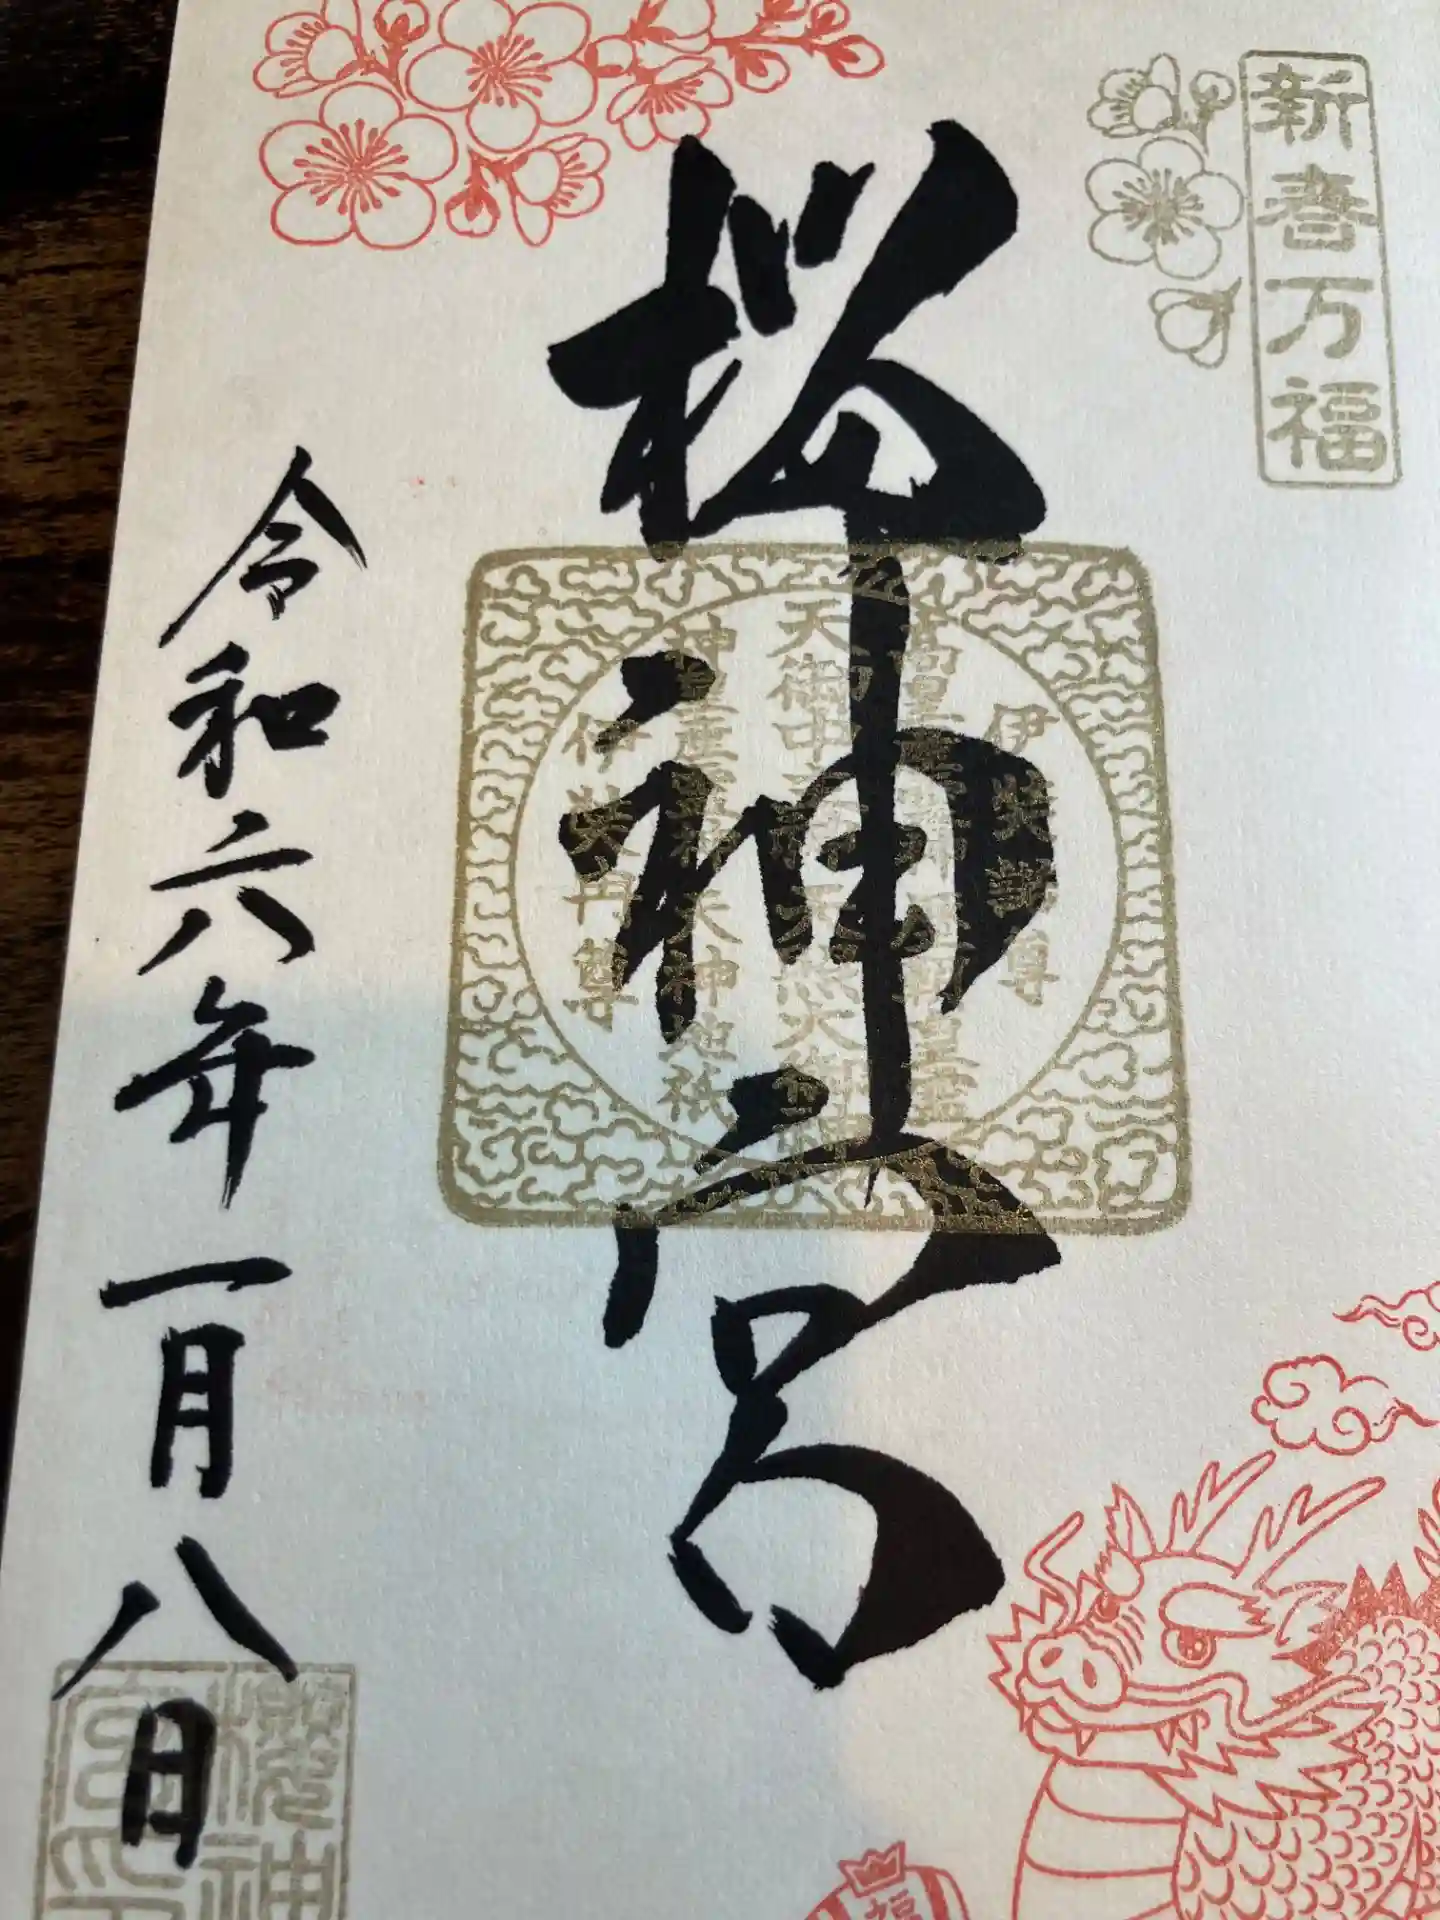 新春万福
桜神宮
伊奘諾尊
高皇産霊神 歴朝皇霊
天御中主神 天照大御神
神皇産霊神 天神地祇
伊奘冉尊
令和六年一月八日
櫻神
宮印
福